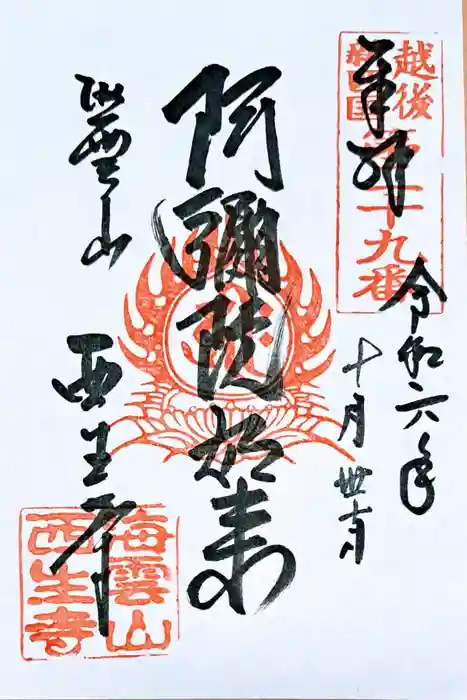 奉拝
越後
十九番
令和六年
十月
阿彌陀如来
海雲山
西生寺
海雲山
西生寺